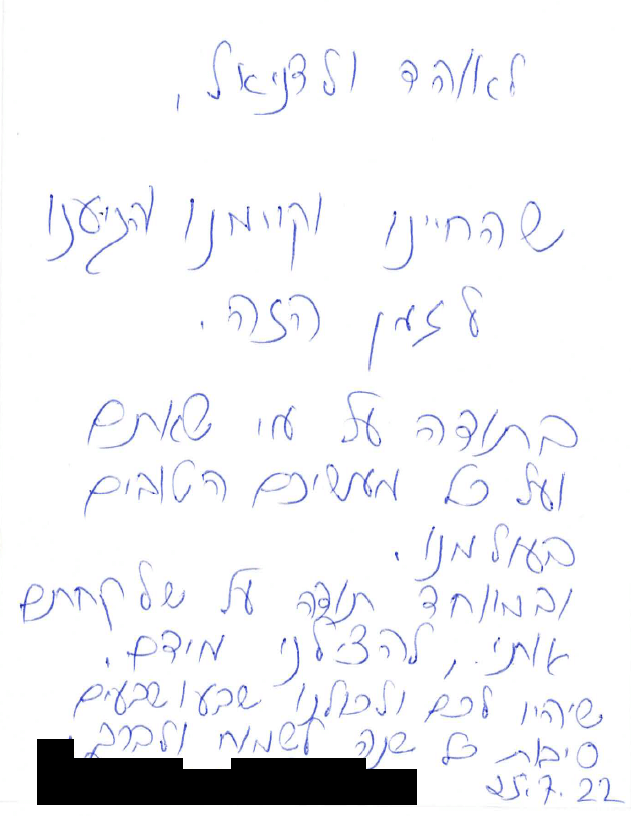 לאוהד ולדניאל,
שהחיינו וקויימנו והגיענו
לזמן הזה.
בתודה על מי שאתם
ועל כל מעשיכם הטובים
בעולמנו.
ובמיוחד תודה על שלקחתם
אותי, להצילני מידם.
שיהיו לכם ולכולנו שבעושבעים
סיבות כל שנה לשמוח ולברך.
25.7.22